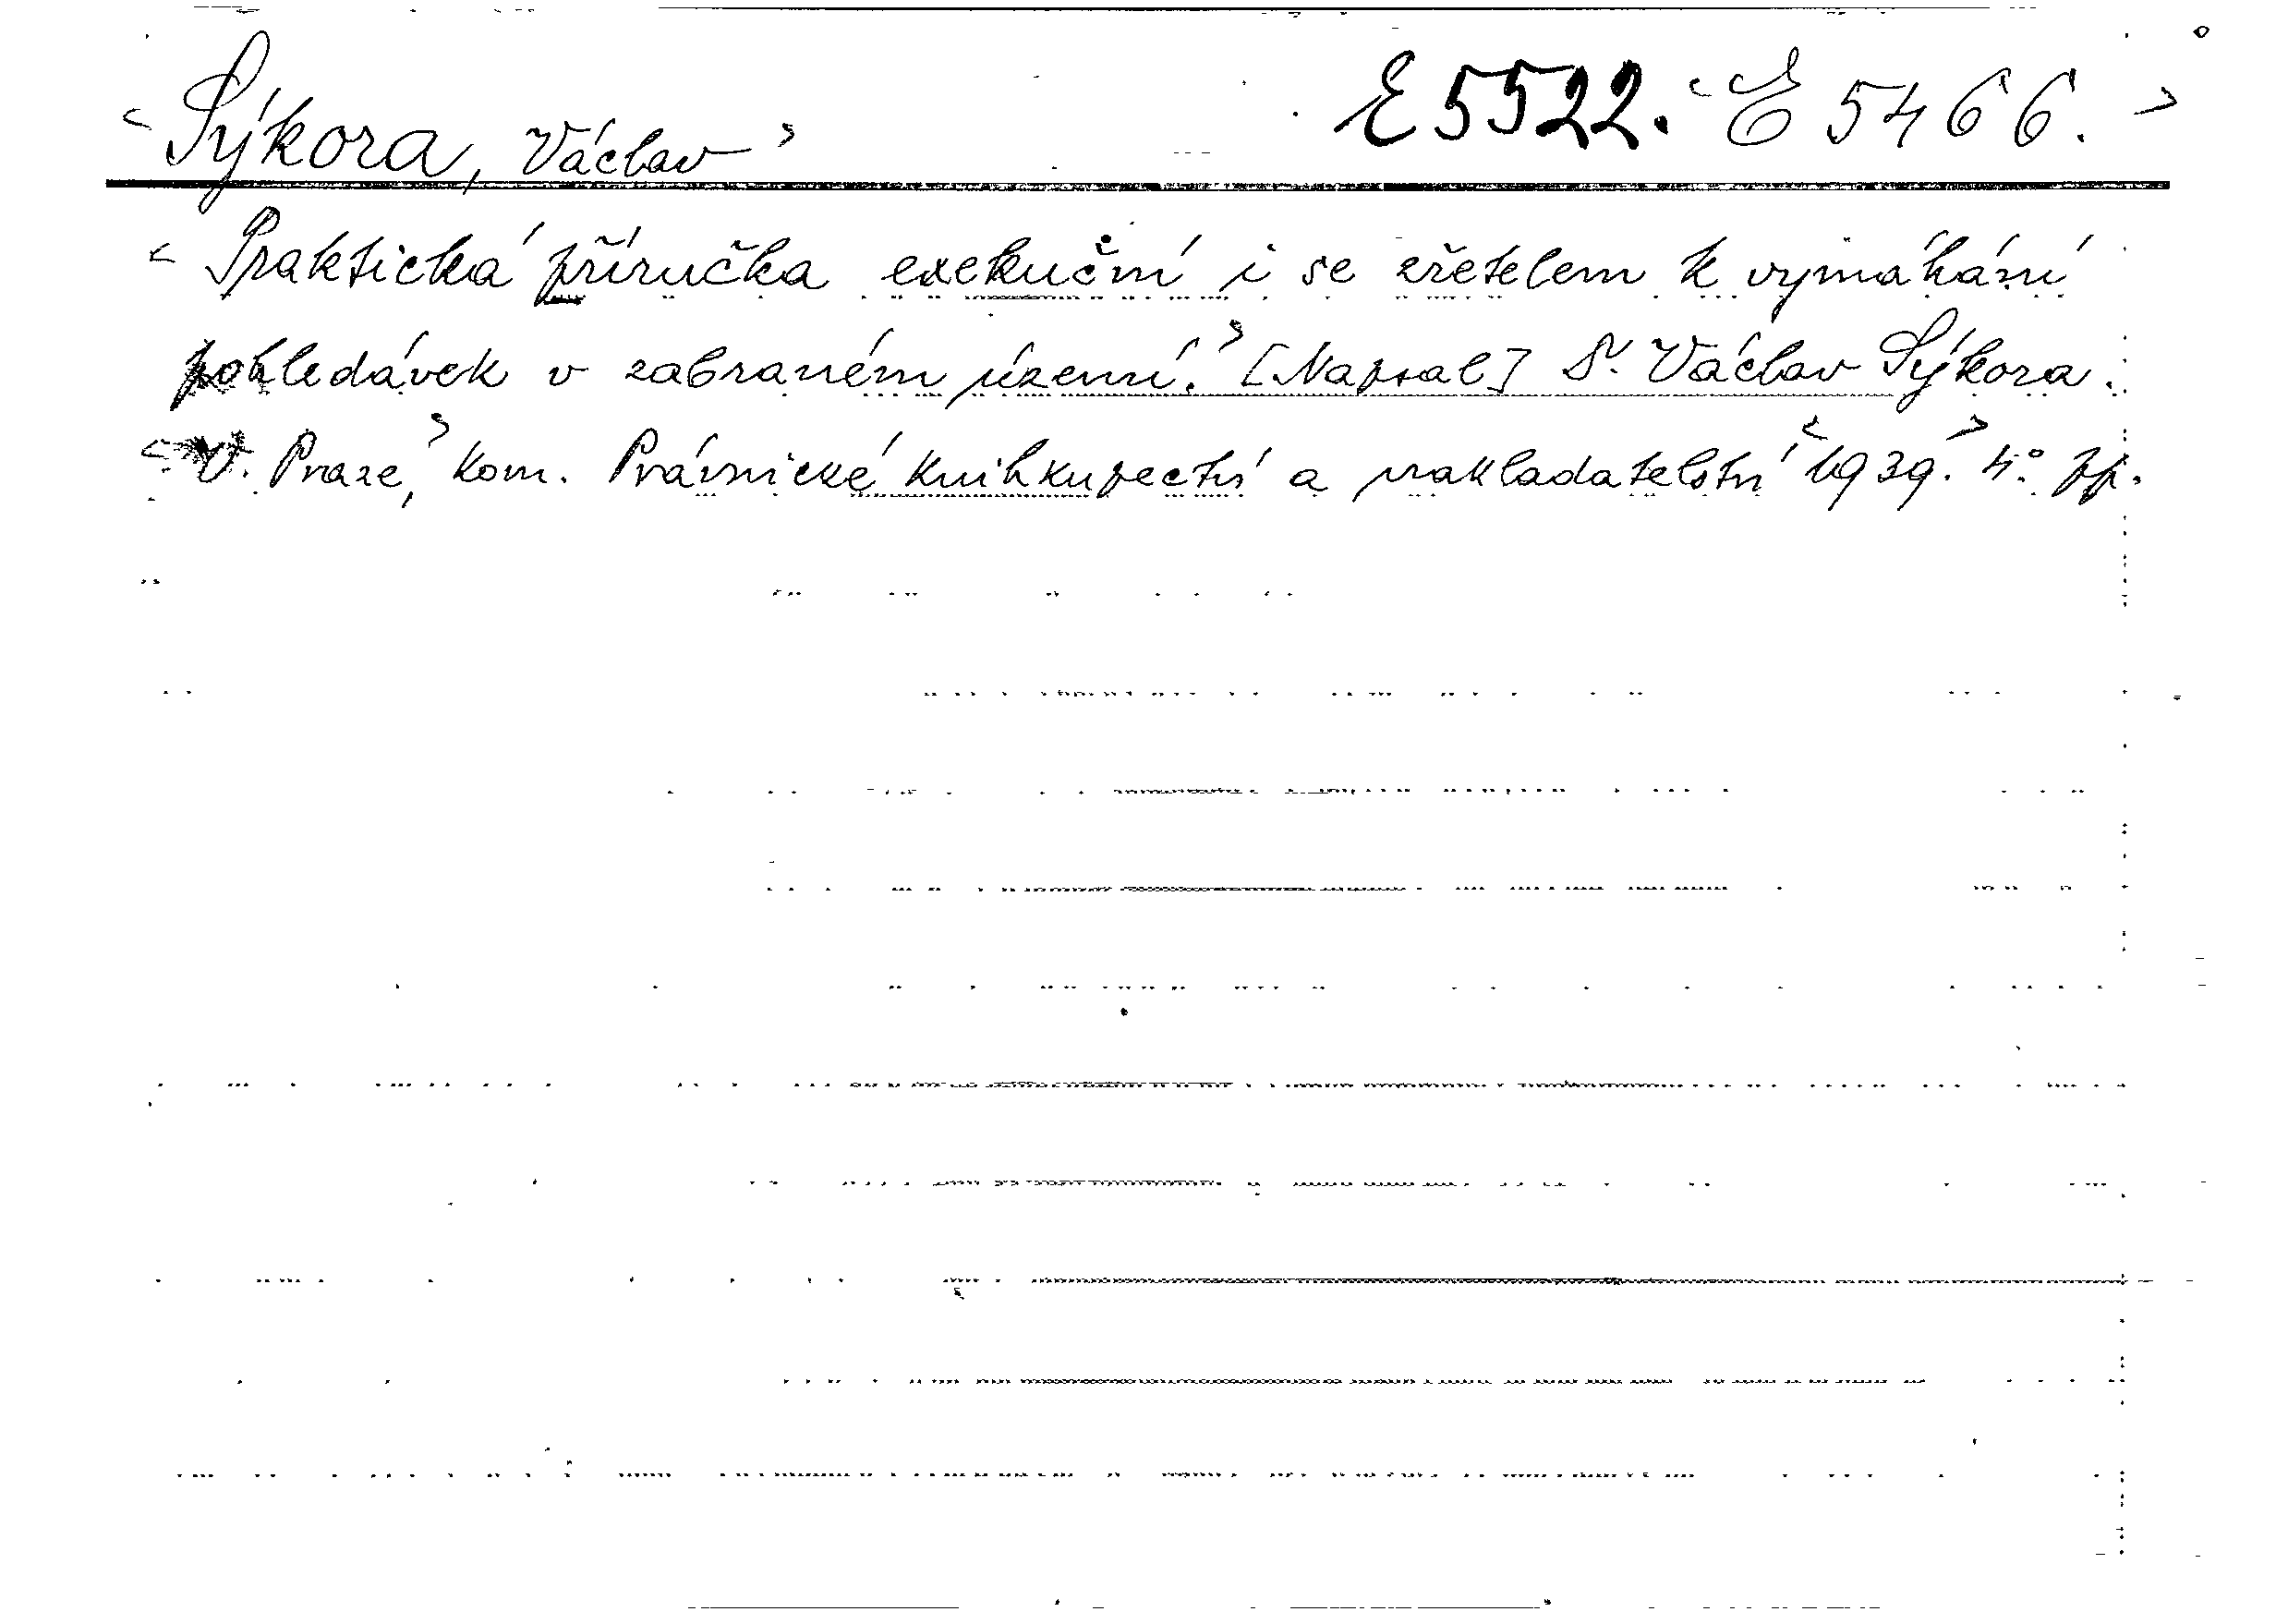 <Sýkora, Václav> E 5522. <E 5466.>
<Praktická příručka exekuční i se zřetelem k vymáhání
pohledávek v zabraném území.> [Napsal] Dr. Václav Sýkora.
<V Praze,> kom. Právnické knihkupectví a nakladatelství <1939.> 4° pp.